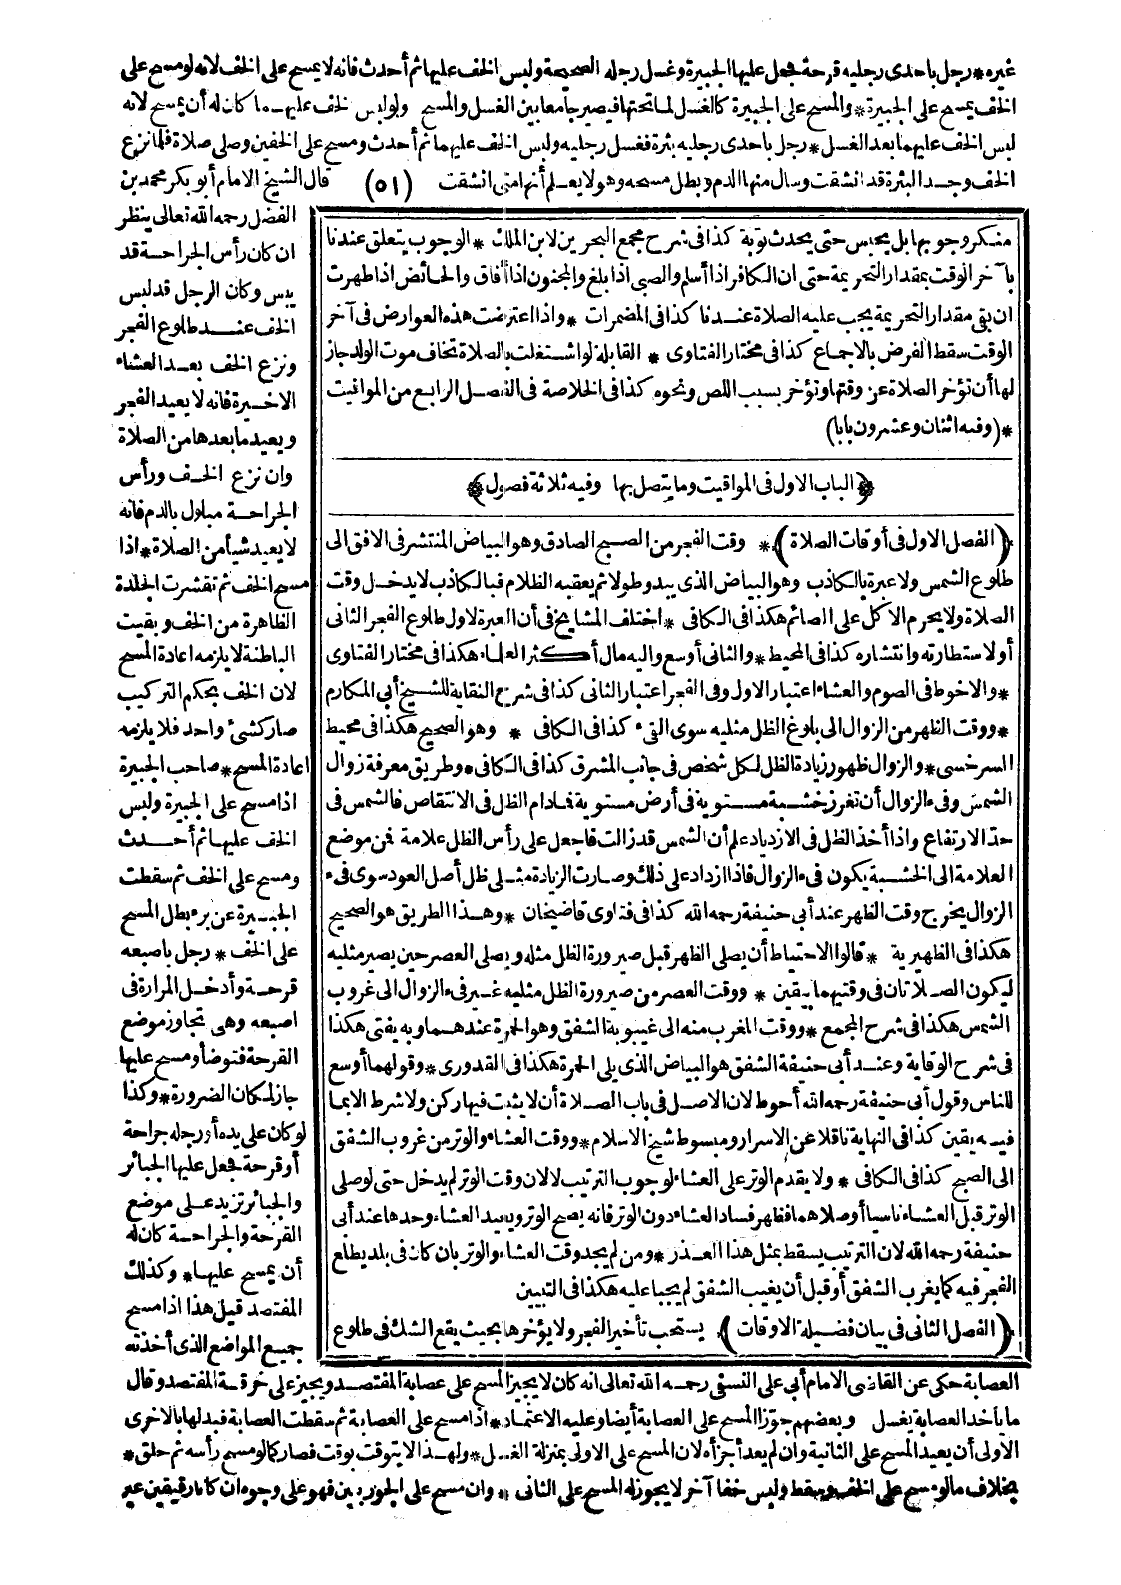 غيره * رجل باحدى رجليه قرحة فجعل عليها الجبيرة وغسل رجله الصحيحة ولبس الخف عليها ثم أحدث فانه لا يمسح على الخف لانه لو مسح على
الخف يمسح على الجبيرة * والمسح على الجبيرة كالغسل لما تحتها فيصير جامعا بين الغسل والمسح ولو لبس الخف عليهـما كان له أن يمسح لانه
لبس الخف عليهما بعد الغسل * رجل باحدى رجليه بثرة فغسل رجليه ولبس الخف عليهما ثم أحدث ومسح على الخفين وصلى صلاة فلما نزع
الخف وجد البثرة قد انشقت وسال منها الدم وبطل مسحه وهو لا يعلم أنها متى انشقت (٥١) قال الشيخ الامام أبو بكر محمد بن
الفضل رحمه الله تعالى ينظر
ان كان رأس الجراحة قد
يبس وكان الرجل قد لبس
الخف عند طلوع الفجر
ونزع الخف بعد العشاء
الاخيرة فانه لا يعيد الفجر
ويعيد ما بعدها من الصلاة
وان نزع الخف ورأس
الجراحة مبلول بالدم فانه
لا يعيد شيأ من الصلاة * اذا
مسح الخف ثم تقشرت الجلدة
الظاهرة من الخف وبقيت
الباطنة لا يلزمه اعادة المسح
لان الخف بحكم التركيب
صار كشئ واحد فلا يلزمه
اعادة المسح * صاحب الجبيرة
اذا مسح على الجبيرة ولبس
الخف عليها ثم أحدث
ومسح على الخف ثم سقطت
الجبيرة عن برء بطل المسح
على الخف * رجل باصبعه
قرحة وأدخل المرارة فى
اصبعه وهى تجاوز موضع
القرحة فتوضأ ومسح عليها
جاز لمكان الضرورة * وكذا
لو كان على يده أو رجله جراحة
أو قرحة فجعل عليها الجبائر
والجبائر تزيد على موضع
القرحة والجراحة كان له
أن يمسح عليها * وكذلك
المفتصد قيل هذا اذا مسح
جميع المواضع الذى أخذته
منكر وجوبها بل يحبس حتى يحدث توبة كذا فى شرح مجمع البحرين لابن الملك * الوجوب يتعلق عندنا
بآخر الوقت بمقدار التحريمة حتى ان الكافر اذا أسلم والصبى اذا بلغ والمجنون اذا أفاق والحائض اذا طهرت
ان بقى مقدار التحريمة يجب عليه الصلاة عندنا كذا فى المضمرات * واذا اعترضت هذه العوارض فى آخر
الوقت سقط الفرض بالاجماع كذا فى مختار الفتاوى * القابلة لو اشتغلت بالصلاة تخاف موت الولد جاز
لها أن تؤخر الصلاة عن وقتها وتؤخر بسبب اللص ونحوه كذا فى الخلاصة فى الفصل الرابع من المواقيت
* (وفيه اثنان وعشرون بابا)
﴿الباب الاول فى المواقيت وما يتصل بها وفيه ثلاثة فصول﴾
(الفصل الاول فى أوقات الصلاة) * وقت الفجر من الصبح الصادق وهو البياض المنتشر فى الافق الى
طلوع الشمس ولا عبرة بالكاذب وهو البياض الذى يبدو طولا ثم يعقبه الظلام فبالكاذب لا يدخل وقت
الصلاة ولا يحرم الاكل على الصائم هكذا فى الكافى * اختلف المشايخ فى أن العبرة لاول طلوع الفجر الثانى
أو لاستطارته وانتشاره كذا فى المحيط * والثانى أوسع واليه مال أكثر العلماء هكذا فى مختار الفتاوى
* والاحوط فى الصوم والعشاء اعتبار الاول وفى الفجر اعتبار الثانى كذا فى شرح النقاية للشيخ أبى المكارم
* ووقت الظهر من الزوال الى بلوغ الظل مثليه سوى الفىء كذا فى الكافى * وهو الصحيح هكذا فى محيط
السرخسى * والزوال ظهور زيادة الظل لكل شخص فى جانب المشرق كذا فى الكافى * وطريق معرفة زوال
الشمس وفىء الزوال أن تغرز خشبة مستوية فى أرض مستوية فما دام الظل فى الانتقاص فالشمس فى
حد الارتفاع واذا أخذ الظل فى الازدياد علم أن الشمس قد زالت فاجعل على رأس الظل علامة فمن موضع
العلامة الى الخشبة يكون فىء الزوال فاذا ازداد على ذلك وصارت الزيادة مثلى ظل أصل العود سوى فىء
الزوال يخرج وقت الظهر عند أبى حنيفة رحمه الله كذا فى فتاوى قاضيخان * وهذا الطريق هو الصحيح
هكذا فى الظهيرية * قالوا الاحتياط أن يصلى الظهر قبل صيرورة الظل مثله ويصلى العصر حين يصير مثليه
ليكون الصلاتان فى وقتيهما بيقين * ووقت العصر من صيرورة الظل مثليه غير فىء الزوال الى غروب
الشمس هكذا فى شرح المجمع * ووقت المغرب منه الى غيبوبة الشفق وهو الحمرة عندهما وبه يفتى هكذا
فى شرح الوقاية وعند أبى حنيفة الشفق هو البياض الذى يلى الحمرة هكذا فى القدورى * وقولهما أوسع
للناس وقول أبى حنيفة رحمه الله أحوط لان الاصل فى باب الصلاة أن لا يثبت فيها ركن ولا شرط الا بما
فيه يقين كذا فى النهاية ناقلا عن الاسرار ومبسوط شيخ الاسلام * ووقت العشاء والوتر من غروب الشفق
الى الصبح كذا فى الكافى * ولا يقدم الوتر على العشاء لوجوب الترتيب لا لان وقت الوتر لم يدخل حتى لو صلى
الوتر قبل العشاء ناسيا أو صلاهما فظهر فساد العشاء دون الوتر فانه يصح الوتر ويعيد العشاء وحدها عند أبى
حنيفة رحمه الله لان الترتيب يسقط بمثل هذا العذر * ومن لم يجد وقت العشاء والوتر بان كان فى بلد يطلع
الفجر فيه كما يغرب الشفق أو قبل أن يغيب الشفق لم يجبا عليه هكذا فى التبيين
(الفصل الثانى فى بيان فضيلة الاوقات) يستحب تأخير الفجر ولا يؤخرها بحيث يقع الشك فى طلوع
العصابة حكى عن القاضى الامام أبى على النسفى رحمه الله تعالى انه كان لا يجيز المسح على عصابة المفتصد ويجيز على خرقة المفتصد وقال
ما يأخذ العصابة يغسل وبعضهم جوّزا المسح على العصابة أيضا وعليه الاعتماد * اذا مسح على العصابة ثم سقطت العصابة فبدلها بالاخرى
الاولى أن يعيد المسح على الثانية وان لم يعد أجزأه لان المسح على الاولى بمنزلة الغسل * ولهذا لا يتوقت بوقت فصار كما لو مسح رأسه ثم حلق *
بخلاف ما لو مسح على الخف وسقط ولبس خفا آخر لا يجوز له المسح على الثانى * وان مسح على الجوربين فهو على وجوه ان كانا رقيقين غير